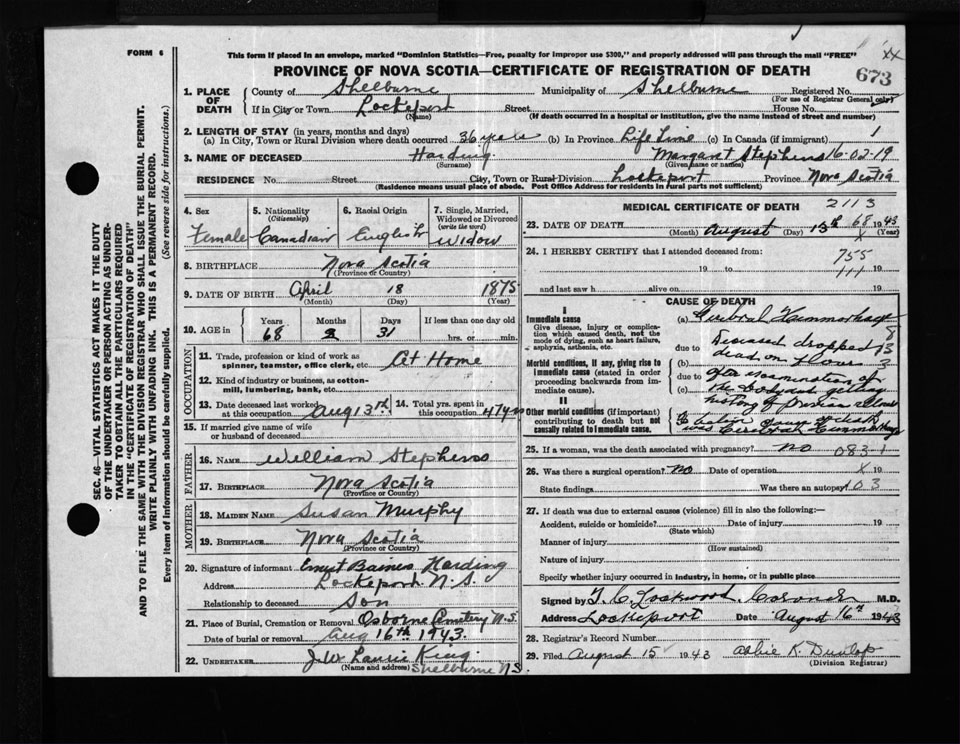 FORM 6
This form if placed in an envelope, marked "Dominion Statistics—Free, penalty for improper use $300," and properly addressed will pass through the mail "FREE"
PROVINCE OF NOVA SCOTIA—CERTIFICATE OF REGISTRATION OF DEATH
673
1. PLACE OF DEATH
County of Shelburne Municipality of Shelburne Registered No.
(For use of Registrar General only)
If in City or Town Lockeport Street House No.
(Name) (If death occurred in a hospital or institution, give the name instead of street and number)
2. LENGTH OF STAY (in years, months and days)
(a) In City, Town or Rural Division where death occurred 36 years (b) In Province Life Time (c) In Canada (if immigrant) 1
3. NAME OF DECEASED Harding Margaret Stephens 16-02-19
(Surname) (Given name or names)
RESIDENCE No. Street City, Town or Rural Division Lockeport Province Nova Scotia
(Residence means usual place of abode. Post Office Address for residents in rural parts not sufficient)
4. Sex Female
5. Nationality (Citizenship) Canadian
6. Racial Origin English
7. Single, Married, Widowed or Divorced (write the word) Widow
8. BIRTHPLACE Nova Scotia
(Province or Country)
9. DATE OF BIRTH April 18 1875
(Month) (Day) (Year)
10. AGE in Years Months Days If less than one day old
68 3 31 hrs. or min.
OCCUPATION
11. Trade, profession or kind of work as spinner, teamster, office clerk, etc. At Home
12. Kind of industry or business, as cotton-mill, lumbering, bank, etc.
13. Date deceased last worked at this occupation Aug 13th
14. Total yrs. spent in this occupation 47 yrs
15. If married give name of wife or husband of deceased
FATHER
16. NAME William Stephens
17. BIRTHPLACE Nova Scotia
(Province or Country)
MOTHER
18. MAIDEN NAME Susan Murphy
19. BIRTHPLACE Nova Scotia
(Province or Country)
20. Signature of informant Ernest Baines Harding
Address Lockeport N.S.
Relationship to deceased Son
21. Place of Burial, Cremation or Removal Osborne Cemetery N.S.
Date of burial or removal Aug 16th 1943.
22. UNDERTAKER J.W. Laurie King
(Name and address) Shelburne N.S.
MEDICAL CERTIFICATE OF DEATH 2113
23. DATE OF DEATH August 13th 68 1943
(Month) (Day) (Year)
24. I HEREBY CERTIFY that I attended deceased from: 755
19 to 111 19
and last saw h alive on 19
CAUSE OF DEATH
I
Immediate cause
Give disease, injury or complication which caused death, not the mode of dying, such as heart failure, asphyxia, asthenia, etc.
(a) Cerebral Haemmorhage
due to Deceased dropped
Morbid conditions, if any, giving rise to immediate cause (stated in order proceeding backwards from immediate cause).
(b) dead on floor
due to after examination of
(c) the body and getting
history of previous illness
II
Other morbid conditions (if important) contributing to death but not causally related to immediate cause.
cause of death was Cerebral Haemmorhage
25. If a woman, was the death associated with pregnancy? no 083-1
26. Was there a surgical operation? no Date of operation X 19
State findings Was there an autopsy? 103
27. If death was due to external causes (violence) fill in also the following:—
Accident, suicide or homicide? Date of injury 19
(State which)
Manner of injury
(How sustained)
Nature of injury
Specify whether injury occurred in industry, in home, or in public place
Signed by T. C. Lockwood Coroner M.D.
Address Lockeport Date August 16th 1943
28. Registrar's Record Number
29. Filed August 15 1943 Abbie K. Dunlop
(Division Registrar)
SEC. 46—VITAL STATISTICS ACT MAKES IT THE DUTY
OF THE UNDERTAKER OR PERSON ACTING AS UNDERTAKER TO OBTAIN ALL THE PARTICULARS REQUIRED
IN THE "CERTIFICATE OF REGISTRATION OF DEATH"
AND TO FILE THE SAME WITH THE DIVISION REGISTRAR WHO SHALL ISSUE THE BURIAL PERMIT.
WRITE PLAINLY WITH UNFADING INK. THIS IS A PERMANENT RECORD.
Every item of information should be carefully supplied. (See reverse side for instructions.)